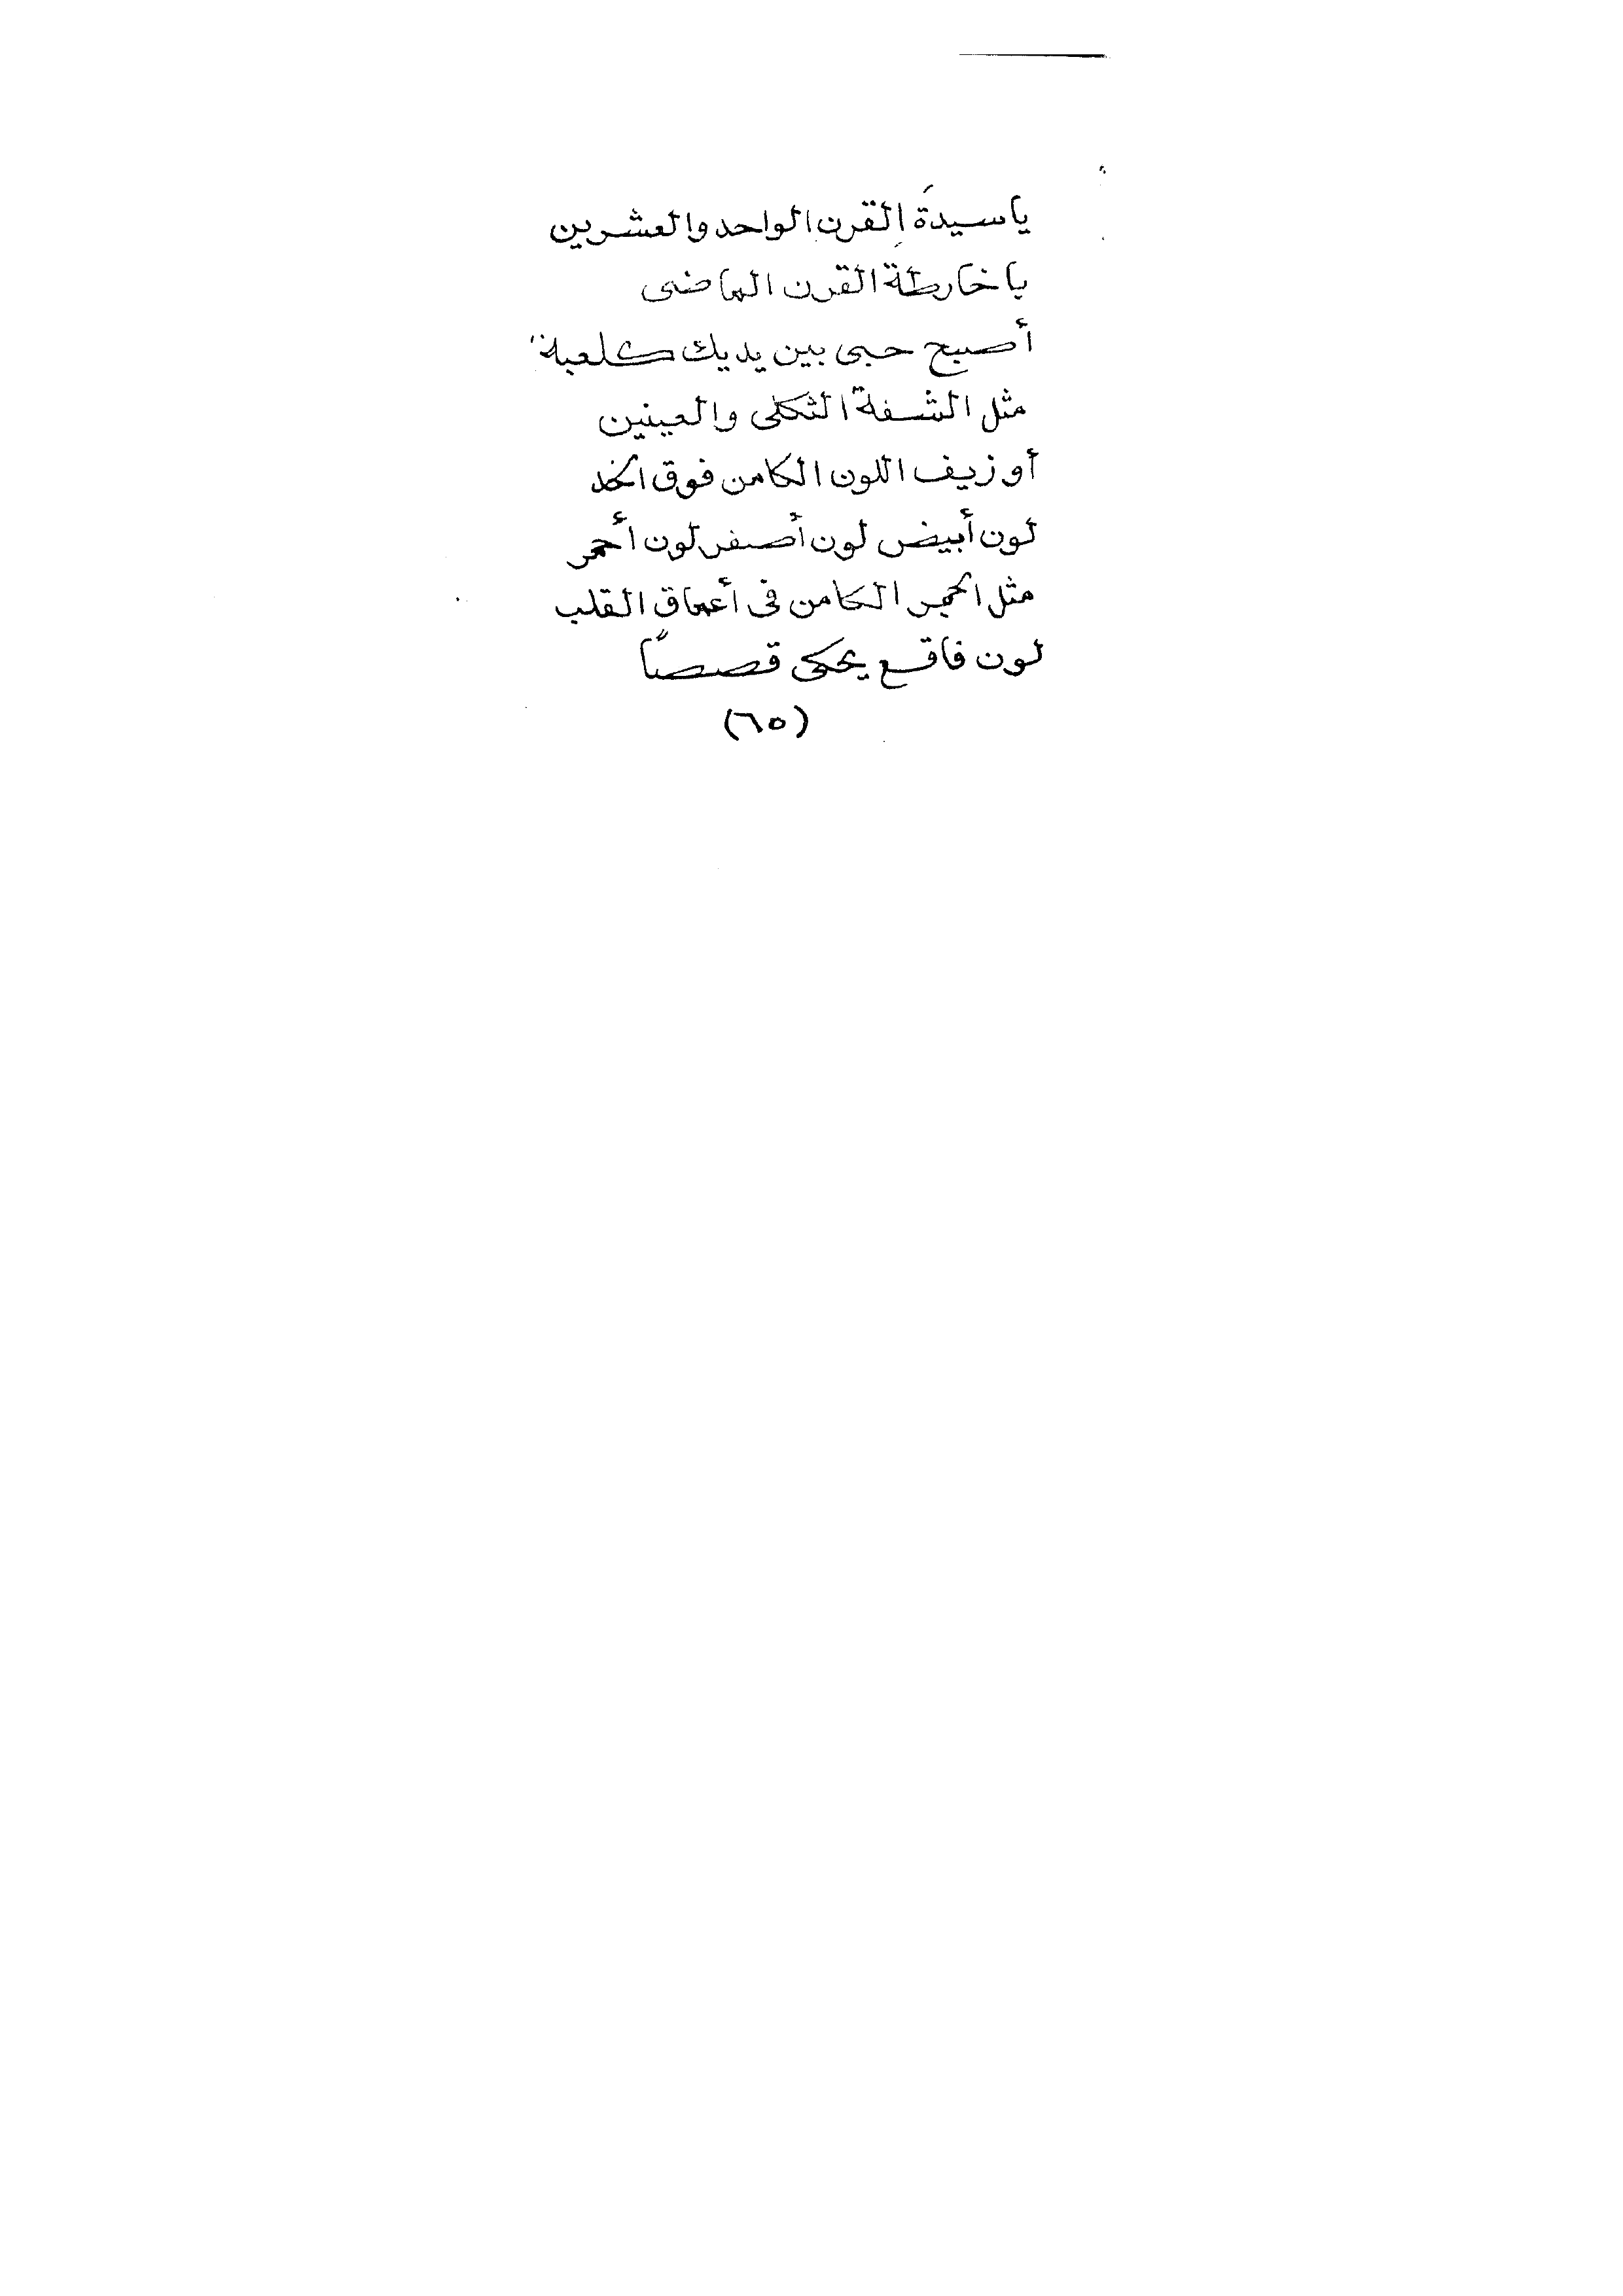 ياسيدةَ القرن الواحد والعشرين
ياخارطة القرن الماضى
أصبح حبى بين يديك كلعبة
مثل الشفة الثكلى والعينين
أو زيف اللون الكامن فوق الخد
لون أبيض لون أصفر لون أحمر
مثل الجمر الكامن فى أعماق القلب
لون فاقع يحكى قصصاً
(٦٥)